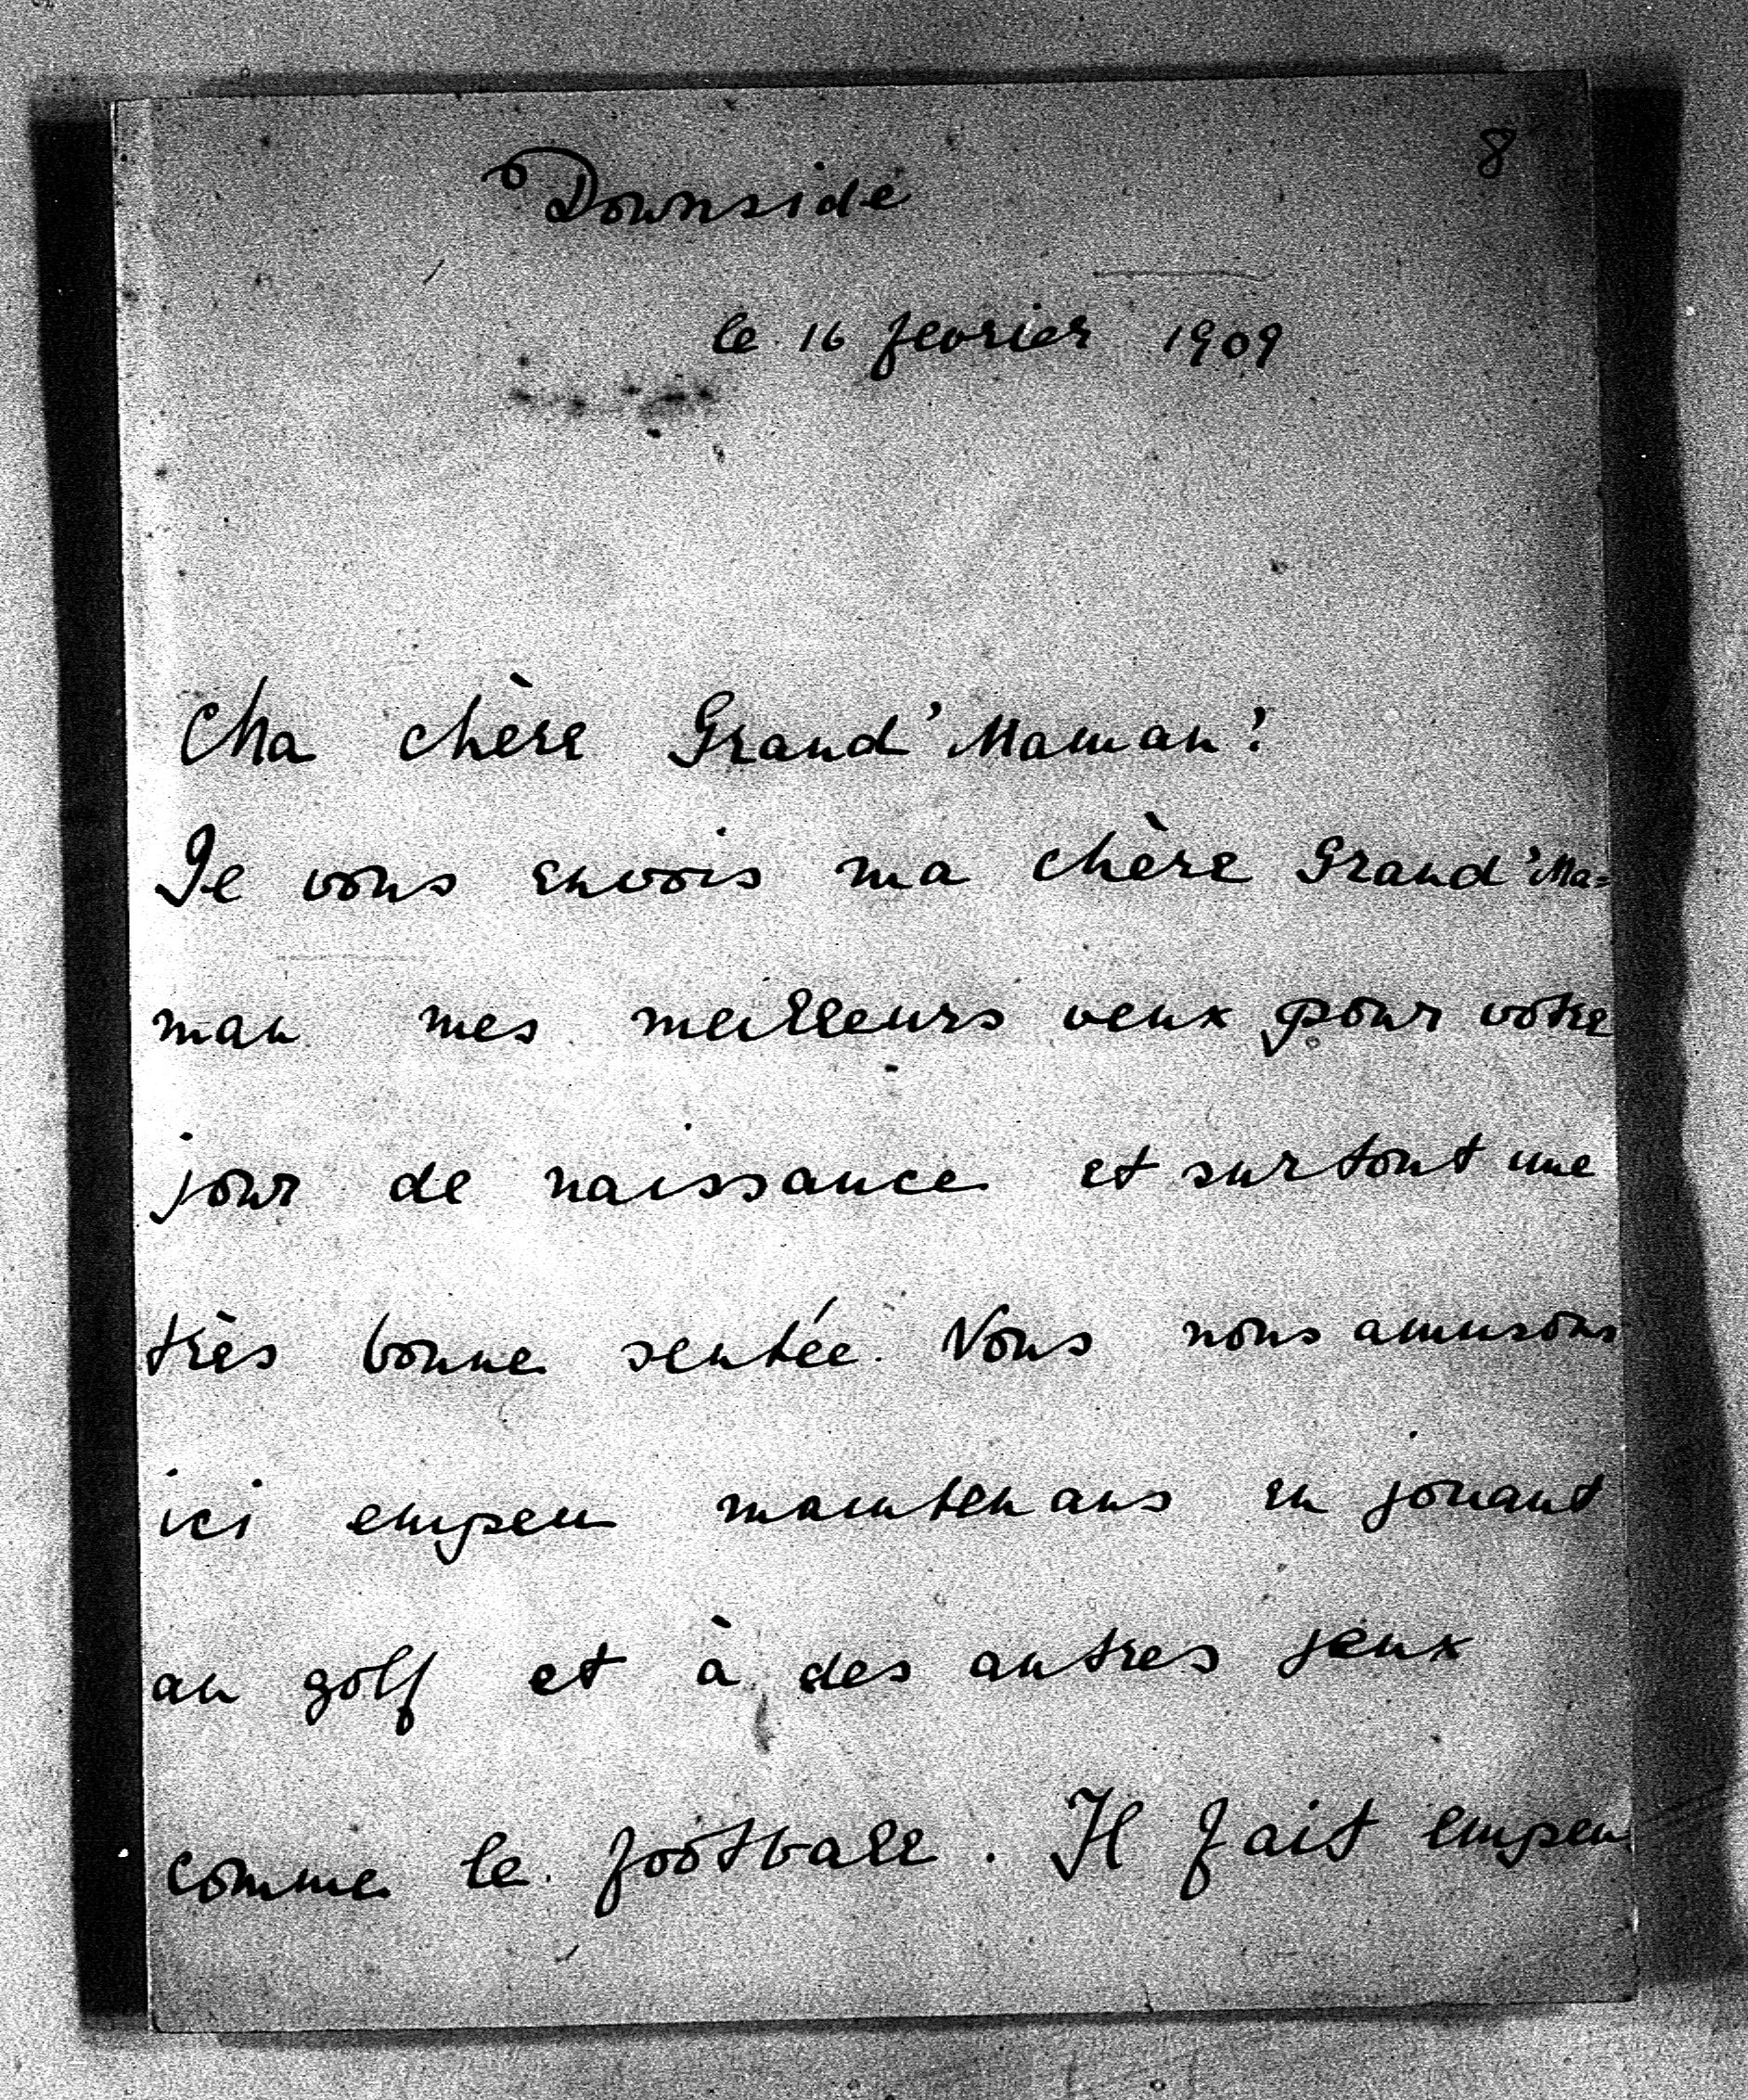 8
Downside
le 16 fevrier 1909
Ma chère Grand'Maman!
Je vous envois ma chère Grand'Ma=
man mes meilleurs veux pour votre
jour de naissance et surtout une
très bonne sentée. Nous nous amusons
ici empeu maintenans en jouant
au golf et à des autres jeux
comme le football. Il fait empeu